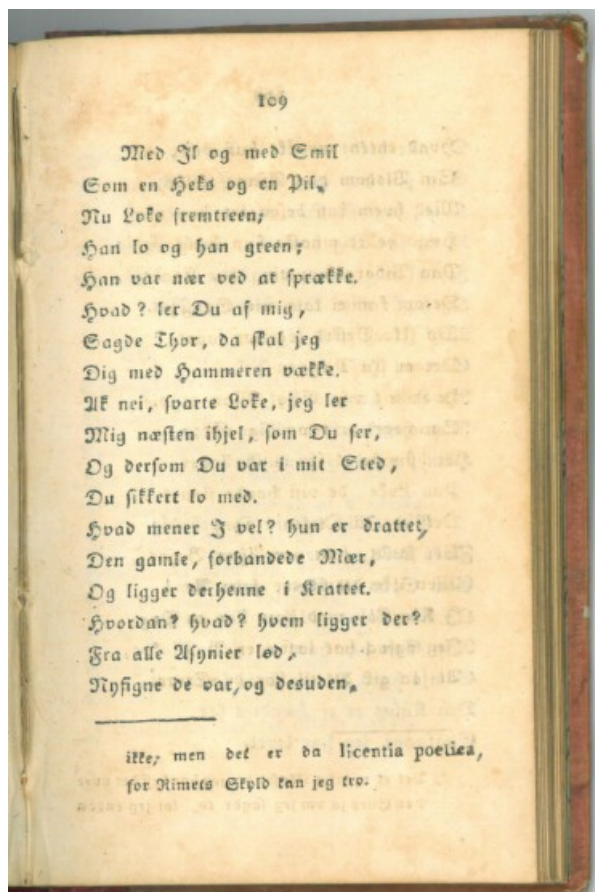 109
Med Jl og med Smil
Som en Heks og en Pil,
Nu Loke fremtreen;
Han lo og han green;
Han var nær ved at sprække.
Hvad? ler Du af mig,
Sagde Thor, da skal jeg
Dig med Hammeren vække.
Ak nei, svarte Loke, jeg ler
Mig næsten ihjel, som Du ser,
Og dersom Du var i mit Sted,
Du sikkert lo med.
Hvad mener J vel? hun er drattet,
Den gamle, forbandede Mær,
Og ligger derhenne i Krattet.
Hvordan? hvad? hvem ligger der?
Fra alle Asynier lød,
Nysigne de var, og desuden,
ikke, men det er da licentia poetica,
for Rimets Skyld kan jeg tro.